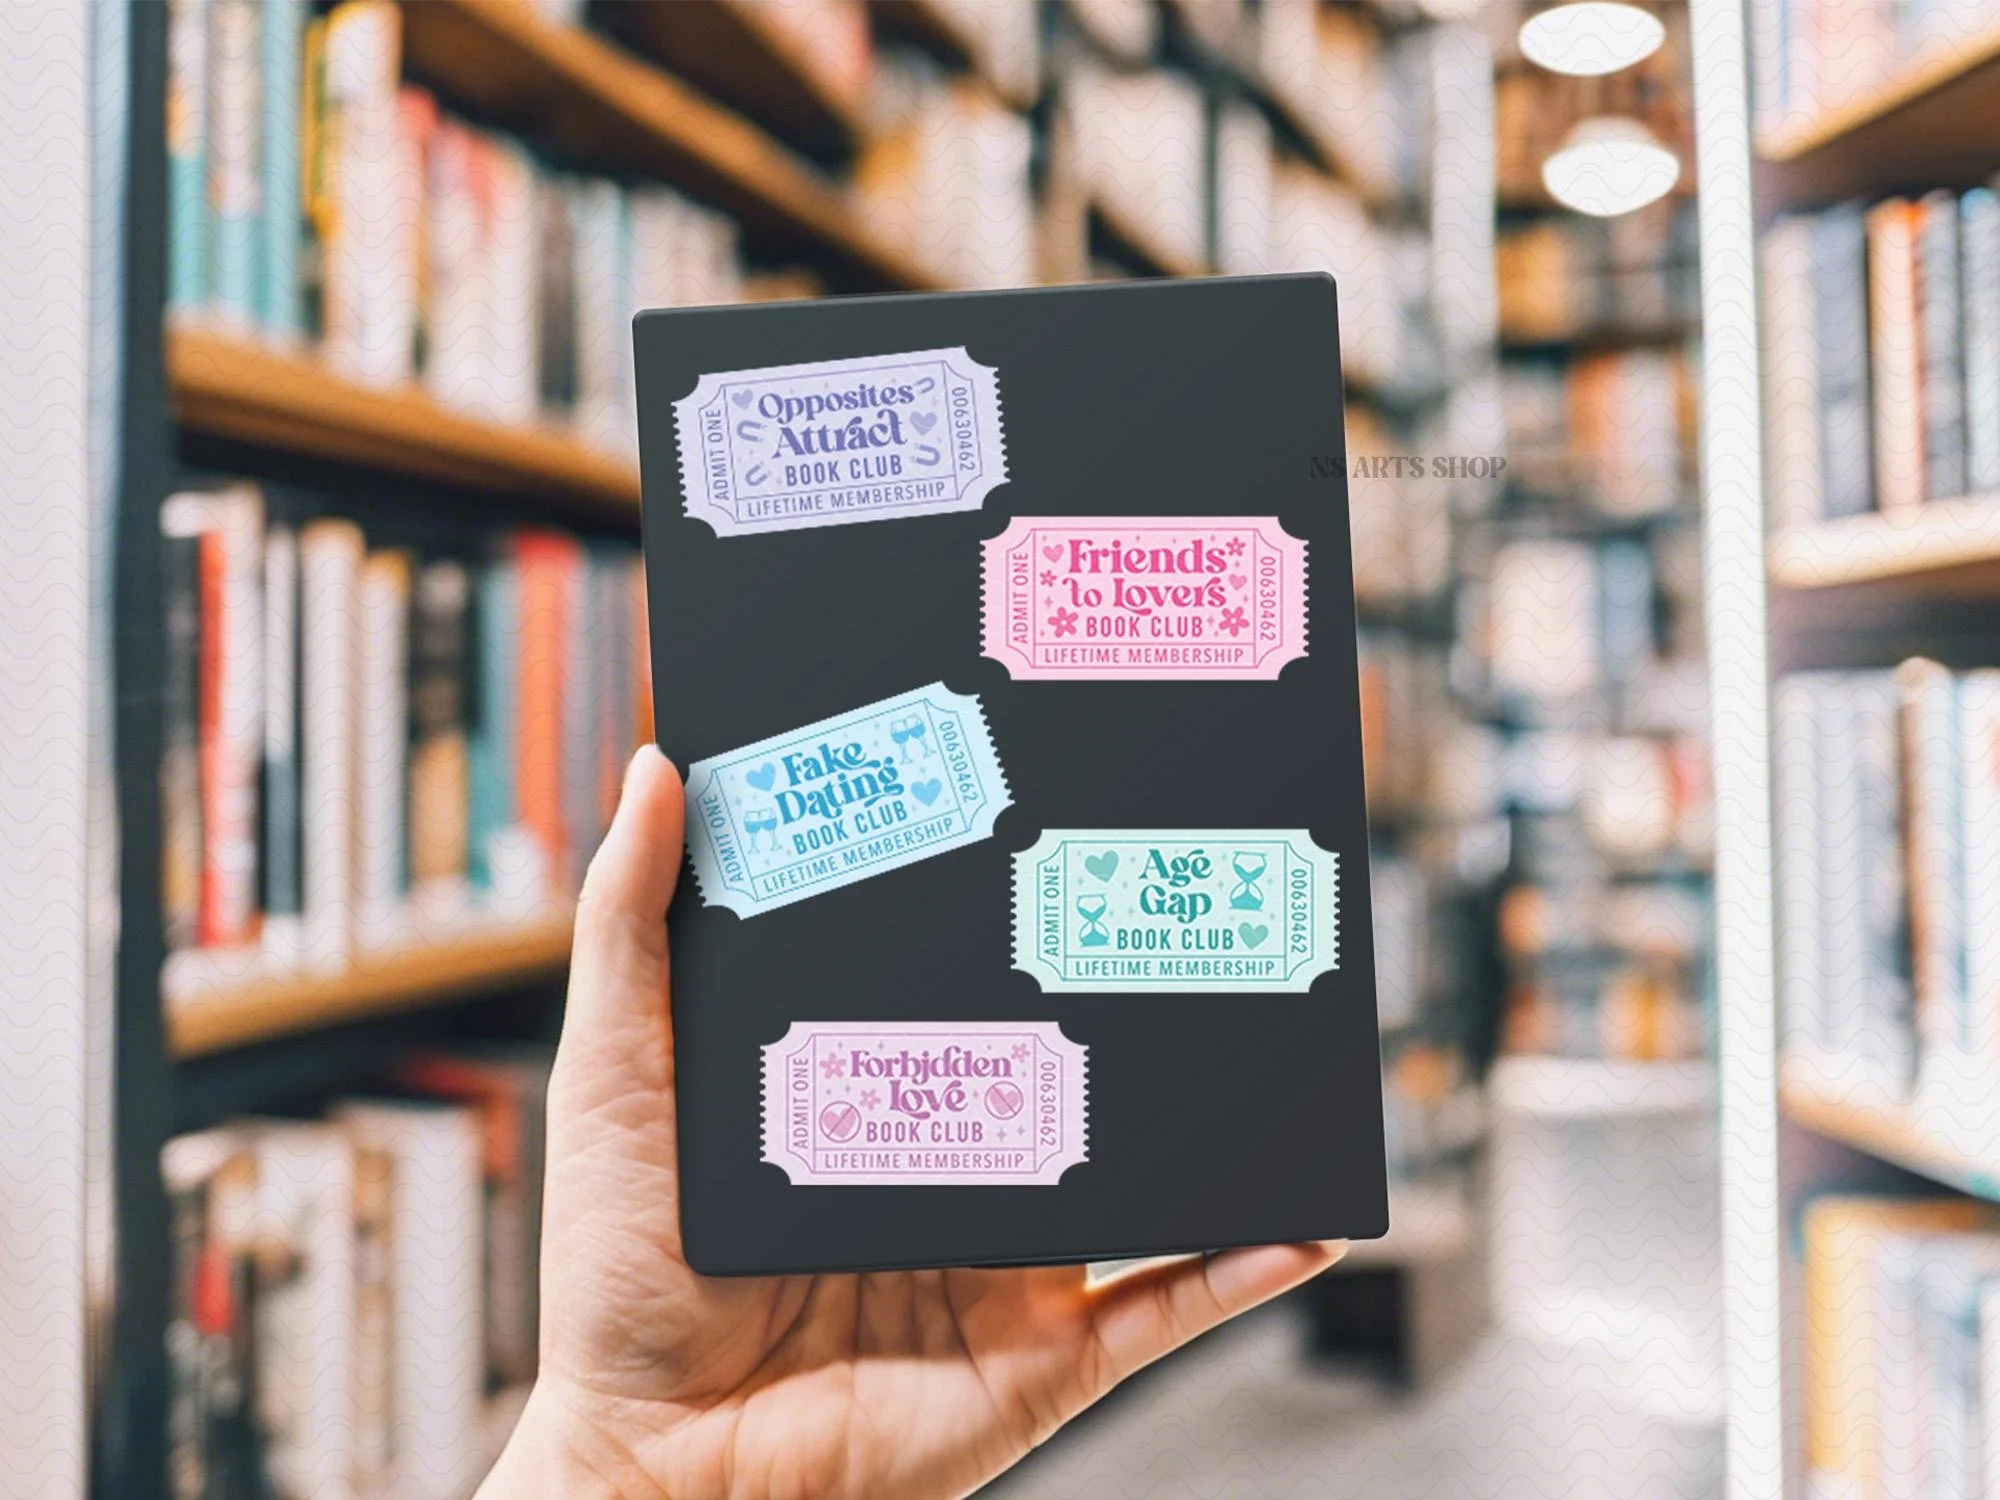 Opposites
Attract
BOOK CLUB
LIFETIME MEMBERSHIP
ADMIT ONE
00630462
NS ARTS SHOP
Friends
to Lovers
BOOK CLUB
LIFETIME MEMBERSHIP
ADMIT ONE
00630462
Fake
Dating
BOOK CLUB
LIFETIME MEMBERSHIP
ADMIT ONE
00630462
Age
Gap
BOOK CLUB
LIFETIME MEMBERSHIP
ADMIT ONE
00630462
Forbidden
Love
BOOK CLUB
LIFETIME MEMBERSHIP
ADMIT ONE
00630462